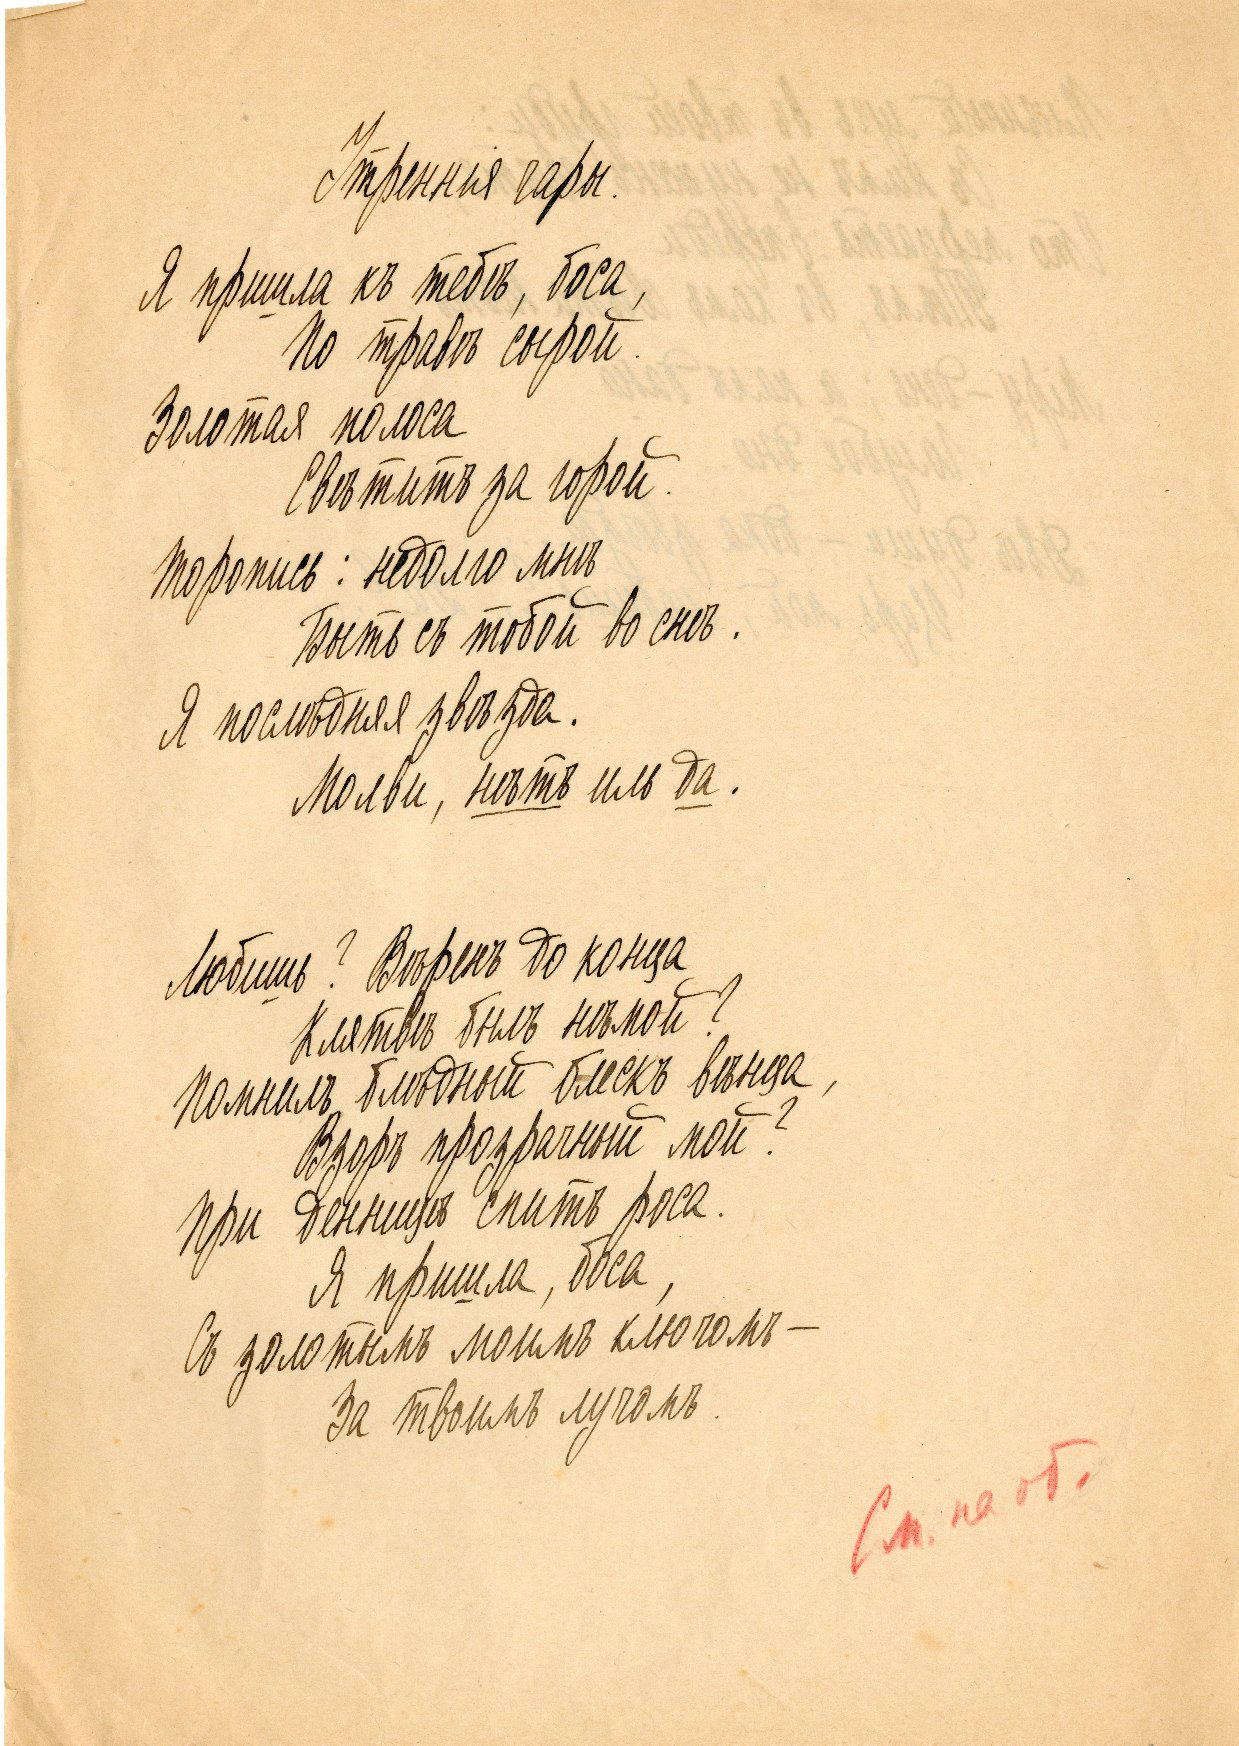 Утреннія чары.
Я пришла къ тебѣ, боса,
По травѣ сырой.
Золотая полоса
Свѣтитъ за горой.
Торопись: недолго мнѣ
Быть съ тобой во снѣ.
Я послѣдняя звѣзда.
Молви, нѣтъ иль да.
Любишь? Вѣренъ до конца
Клятвѣ былъ нѣмой?
Помнилъ блѣдный блескъ вѣнца,
Взоръ прозрачный мой?
При денницѣ спитъ роса.
Я пришла, боса,
Съ золотымъ моимъ ключомъ—
За твоимъ лучомъ.
См. на об.